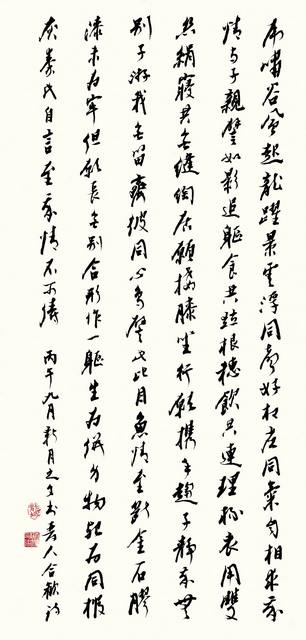 虎嘯谷風起龍躍景雲浮同聲好相應同氣自相求我
情與子親譬如影追軀食共並根穗飲共連理杯衣用雙
絲絹寢共無縫裯居願接膝坐行願攜手趨子靜我無
動子游我無留齊彼同心鳥譬此比目魚情至斷金石膠
漆未為牢但願長無別合形作一軀生為併身物死為同棺
灰秦氏自言至我情不可儔 丙午九月新月之夕書晉人合歡詩